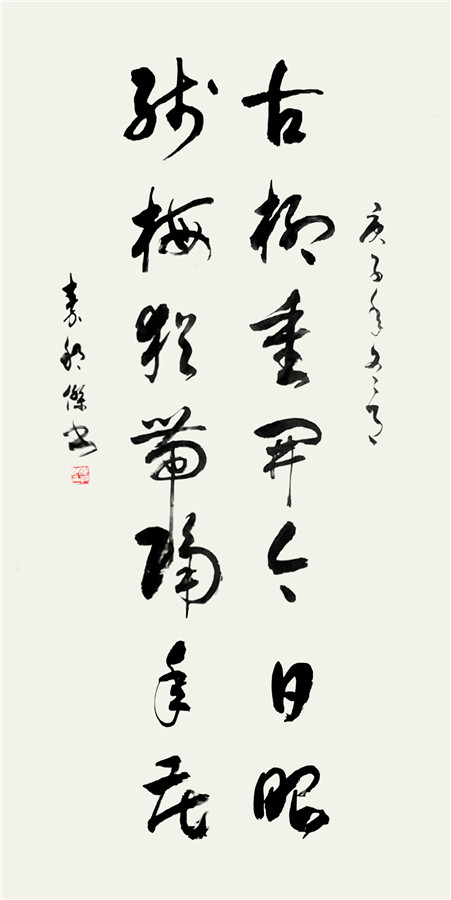 庚子年冬月
古柳重開今日眼
殘梅猶帶隔年花
傑書